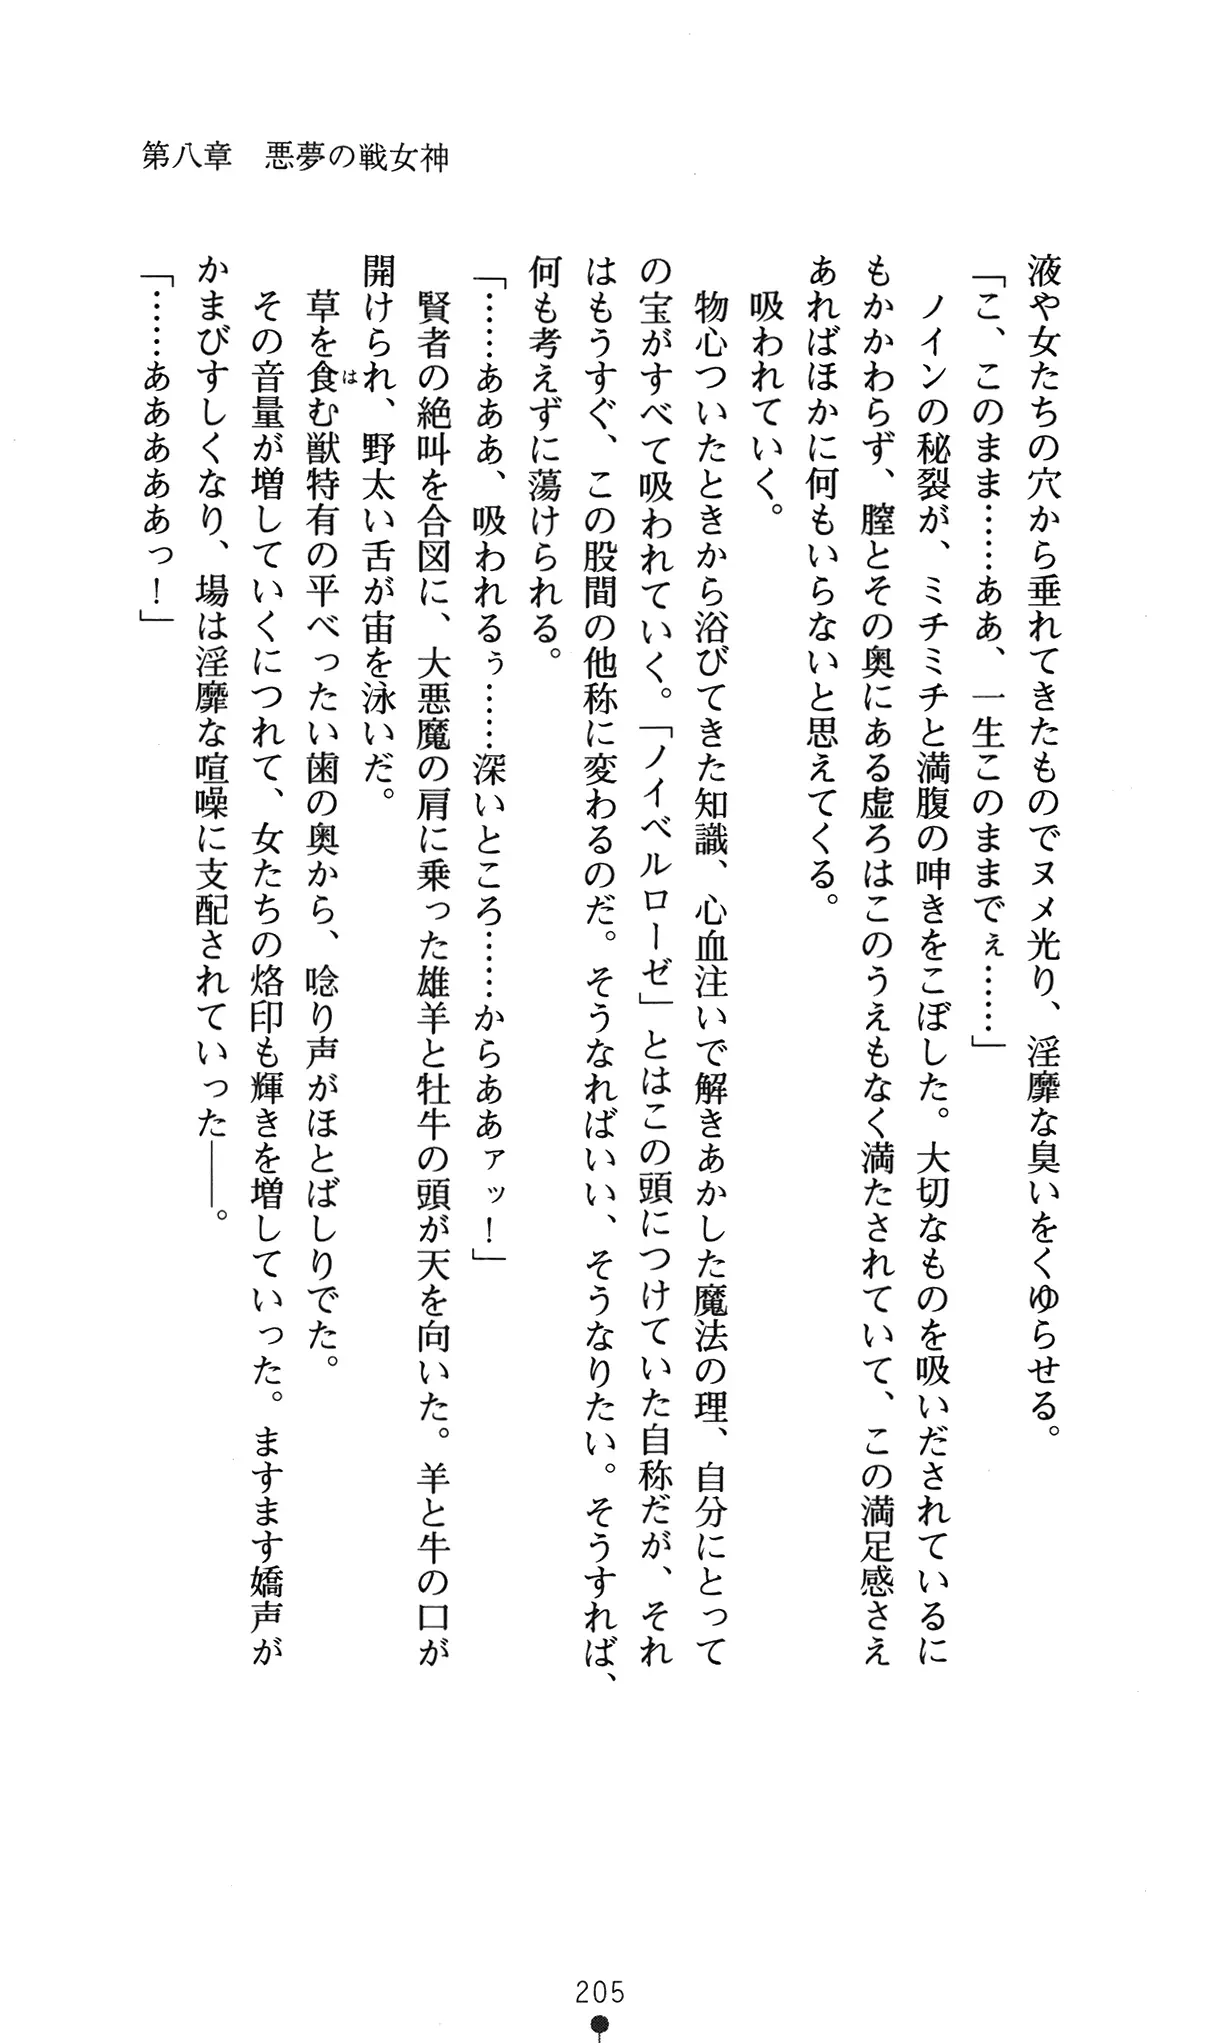 第八章　悪夢の戦女神
液や女たちの穴から垂れてきたものでヌメ光り、淫靡な臭いをくゆらせる。
「こ、このまま……ああ、一生このままでぇ……」
ノインの秘裂が、ミチミチと満腹の呻きをこぼした。大切なものを吸いだされているに
もかかわらず、膣とその奥にある虚ろはこのうえもなく満たされていて、この満足感さえ
あればほかに何もいらないと思えてくる。
吸われていく。
物心ついたときから浴びてきた知識、心血注いで解きあかした魔法の理、自分にとって
の宝がすべて吸われていく。「ノイベルローゼ」とはこの頭につけていた自称だが、それ
はもうすぐ、この股間の他称に変わるのだ。そうなればいい、そうなりたい。そうすれば、
何も考えずに蕩けられる。
「……あああ、吸われるぅ……深いところ……からああァッ！」
賢者の絶叫を合図に、大悪魔の肩に乗った雄羊と牡牛の頭が天を向いた。羊と牛の口が
開けられ、野太い舌が宙を泳いだ。
草を食む獣特有の平べったい歯の奥から、唸り声がほとばしりでた。
は
その音量が増していくにつれて、女たちの烙印も輝きを増していった。ますます嬌声が
かまびすしくなり、場は淫靡な喧噪に支配されていった――。
「……ああああああっ！」
205